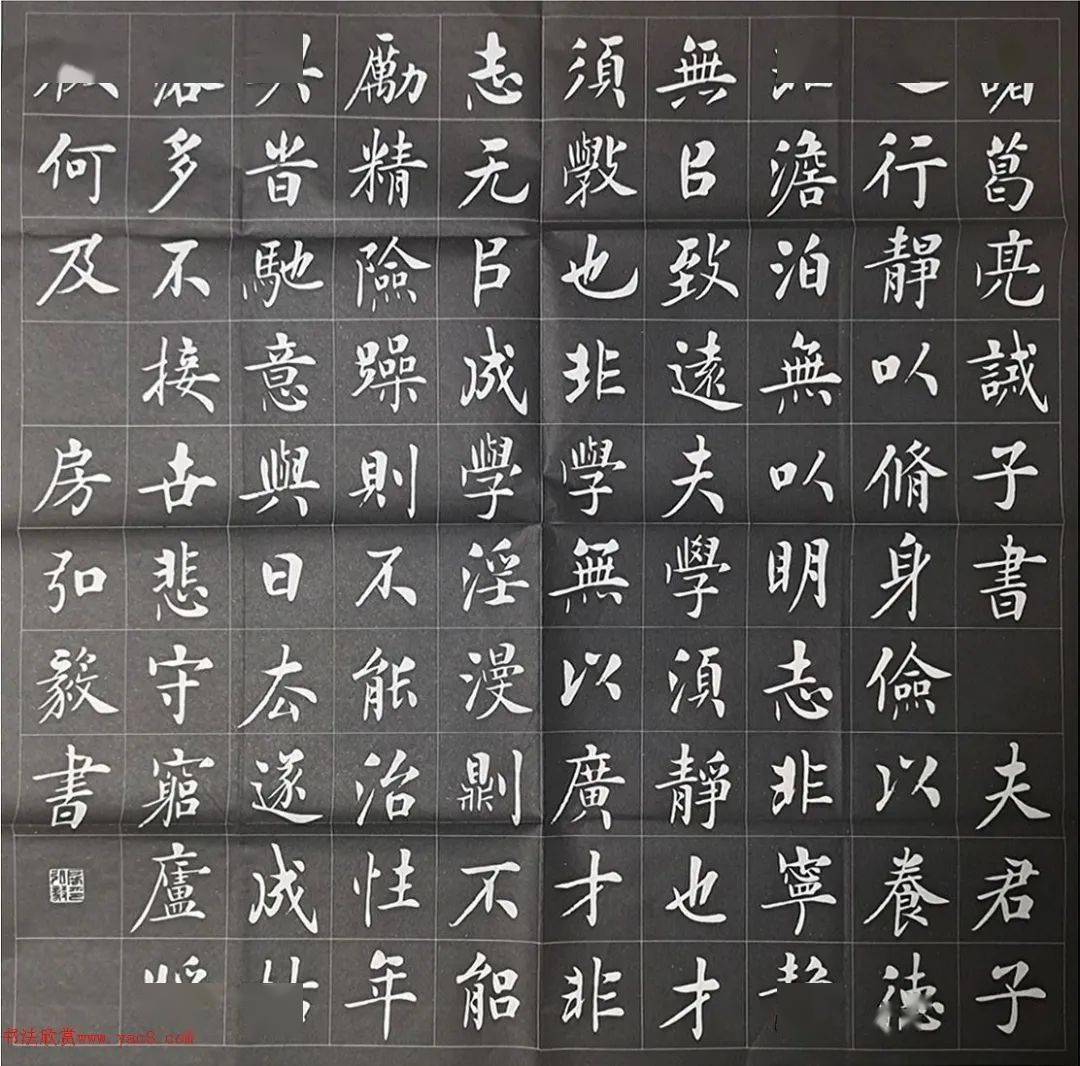 葛亮誡子書 夫君子
行靜以脩身儉以養德
澹泊無以明志非寧
無㠯致遠夫學須靜也才
須斆也非學無以廣才非
志无㠯成學淫漫則不能
勵精險躁則不能治性年
旹馳意與日厺遂成
多不接世悲守窮廬
何及 房弘毅書
书法欣赏www.yac8.com